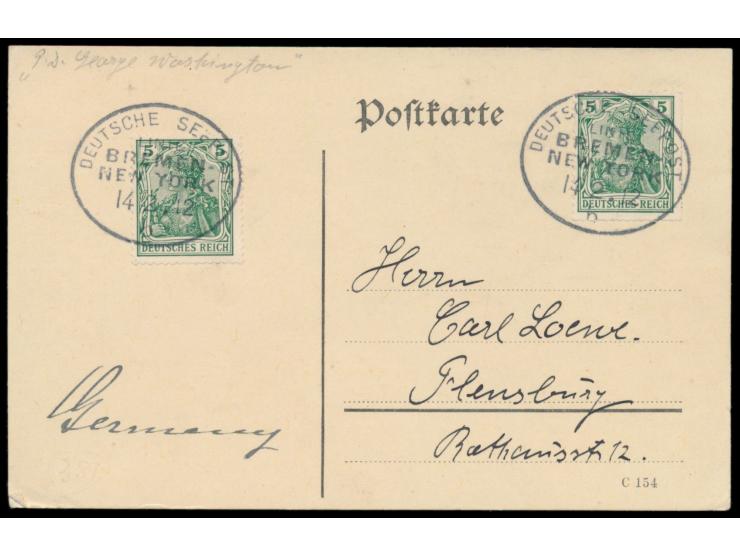 „P.D. George Washington"
Postkarte
DEUTSCHE SEE
LIN
BREMEN-
NEW YORK
14.2.12
5 5
DEUTSCHES REICH
DEUTSCHE SEEPOST
LINIE
BREMEN-
NEW YORK
14.2.12
b
5 5
DEUTSCHES REICH
Herrn
Carl Loewe.
Flensburg
Rathausstr 12.
Germany
C 154